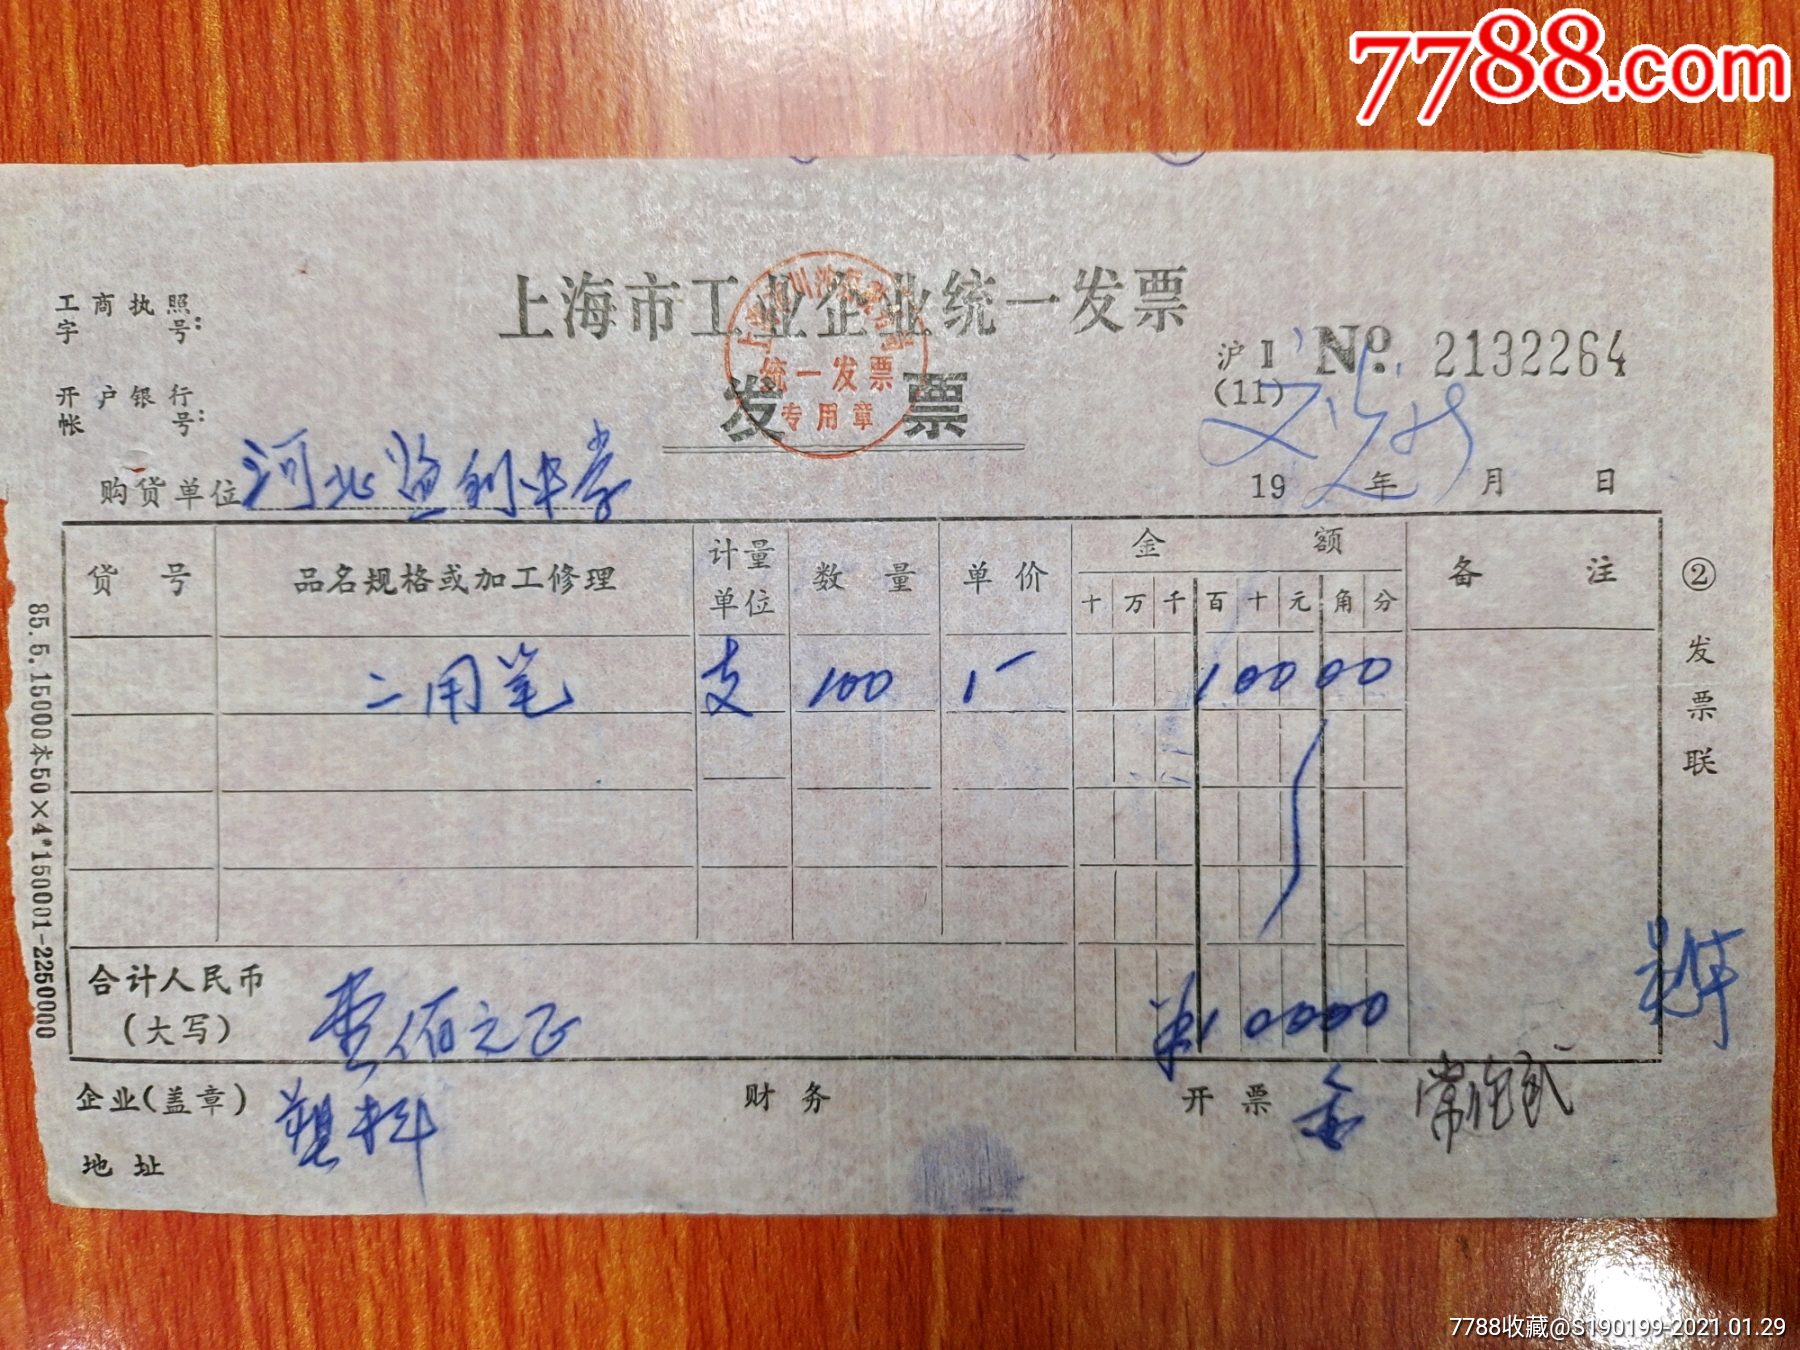 7788.com
上海市工业企业统一发票
发票
统一发票
专用章
工商执照
字 号:
开户银行
帐 号:
沪Ⅱ
(11)
№ 2132264
购货单位 河北 中学
19 年 月 日
货号 品名规格或加工修理 计量单位 数量 单价 金额 备注
十 万 千 百 十 元 角 分
二用笔 支 100 1- 10000
合计人民币
(大写) 壹佰元正 10000
企业(盖章) 塑料 财务 开票
地址
② 发票联
85.5.15000本50×4"150001-2250000
7788收藏@S190199-2021.01.29